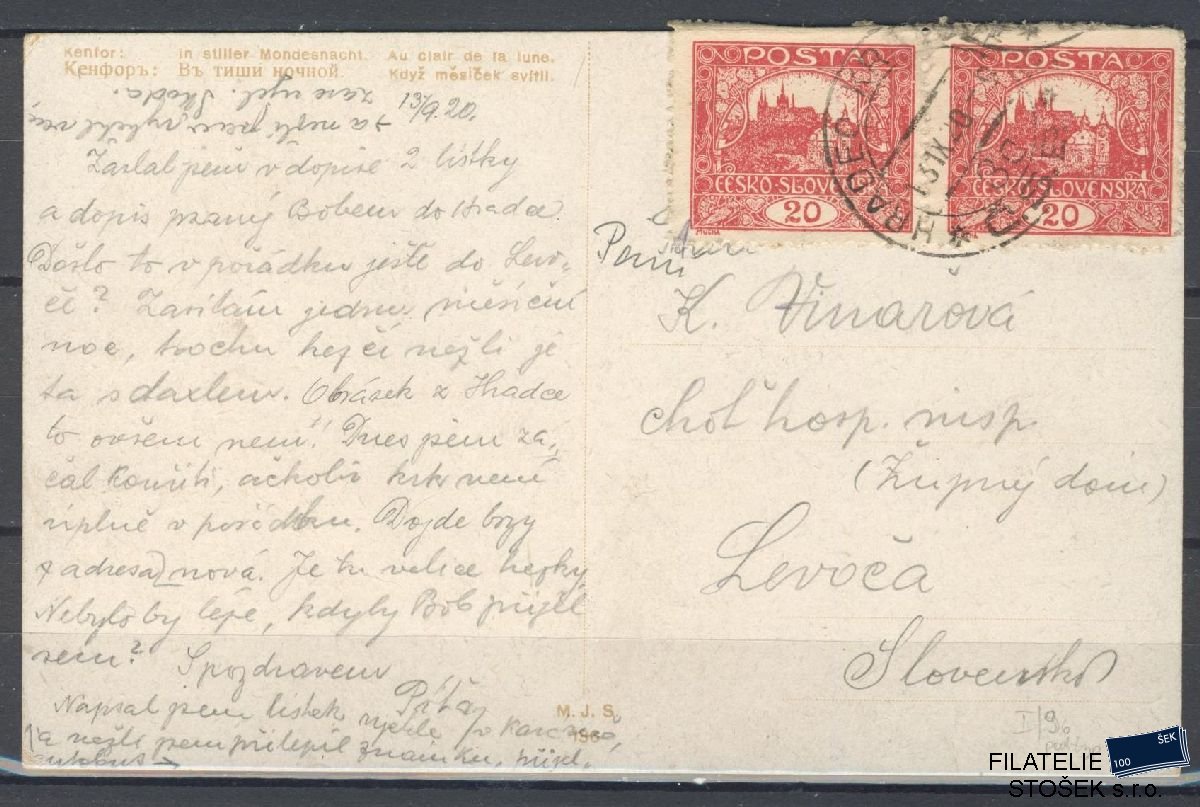 Kenfor: In stiller Mondesnacht. Au clair de la lune.
Кенфоръ: Въ тиши ночной. Když měsíček svítil.
13/9 20.
Zaslal jsem v dopise 2 lístky
a dopis psaný Bobem do Hradce.
Došlo to v pořádku ještě do Levo-
če? Zasílám jednu měsíční
noc, trochu hezčí nežli je
ta s daxlem. Obrázek z Hradce
to ovšem není! Dnes jsem za-
čal kouřiti, ačkoliv krk není
úplně v pořádku. Dojde brzy
adresa nová. Je tu velice hezky.
Nebylo by lépe, kdyby Bob přijel
sem? S pozdravem
Napsal jsem lístek rychle
a nežli jsem přilepil známku, přijel
autobus
POSTA
ČESKO-SLOVENSKÁ
20
POSTA
ČESKO-SLOVENSKÁ
20
HRADEC
13 IX 20
Paní
K. Vinarová
choť hosp. insp.
(Župný dom)
Levoča
Slovensko
M. J. S.
I/96
FILATELIE
STOŠEK s.r.o.
100
ŠEK